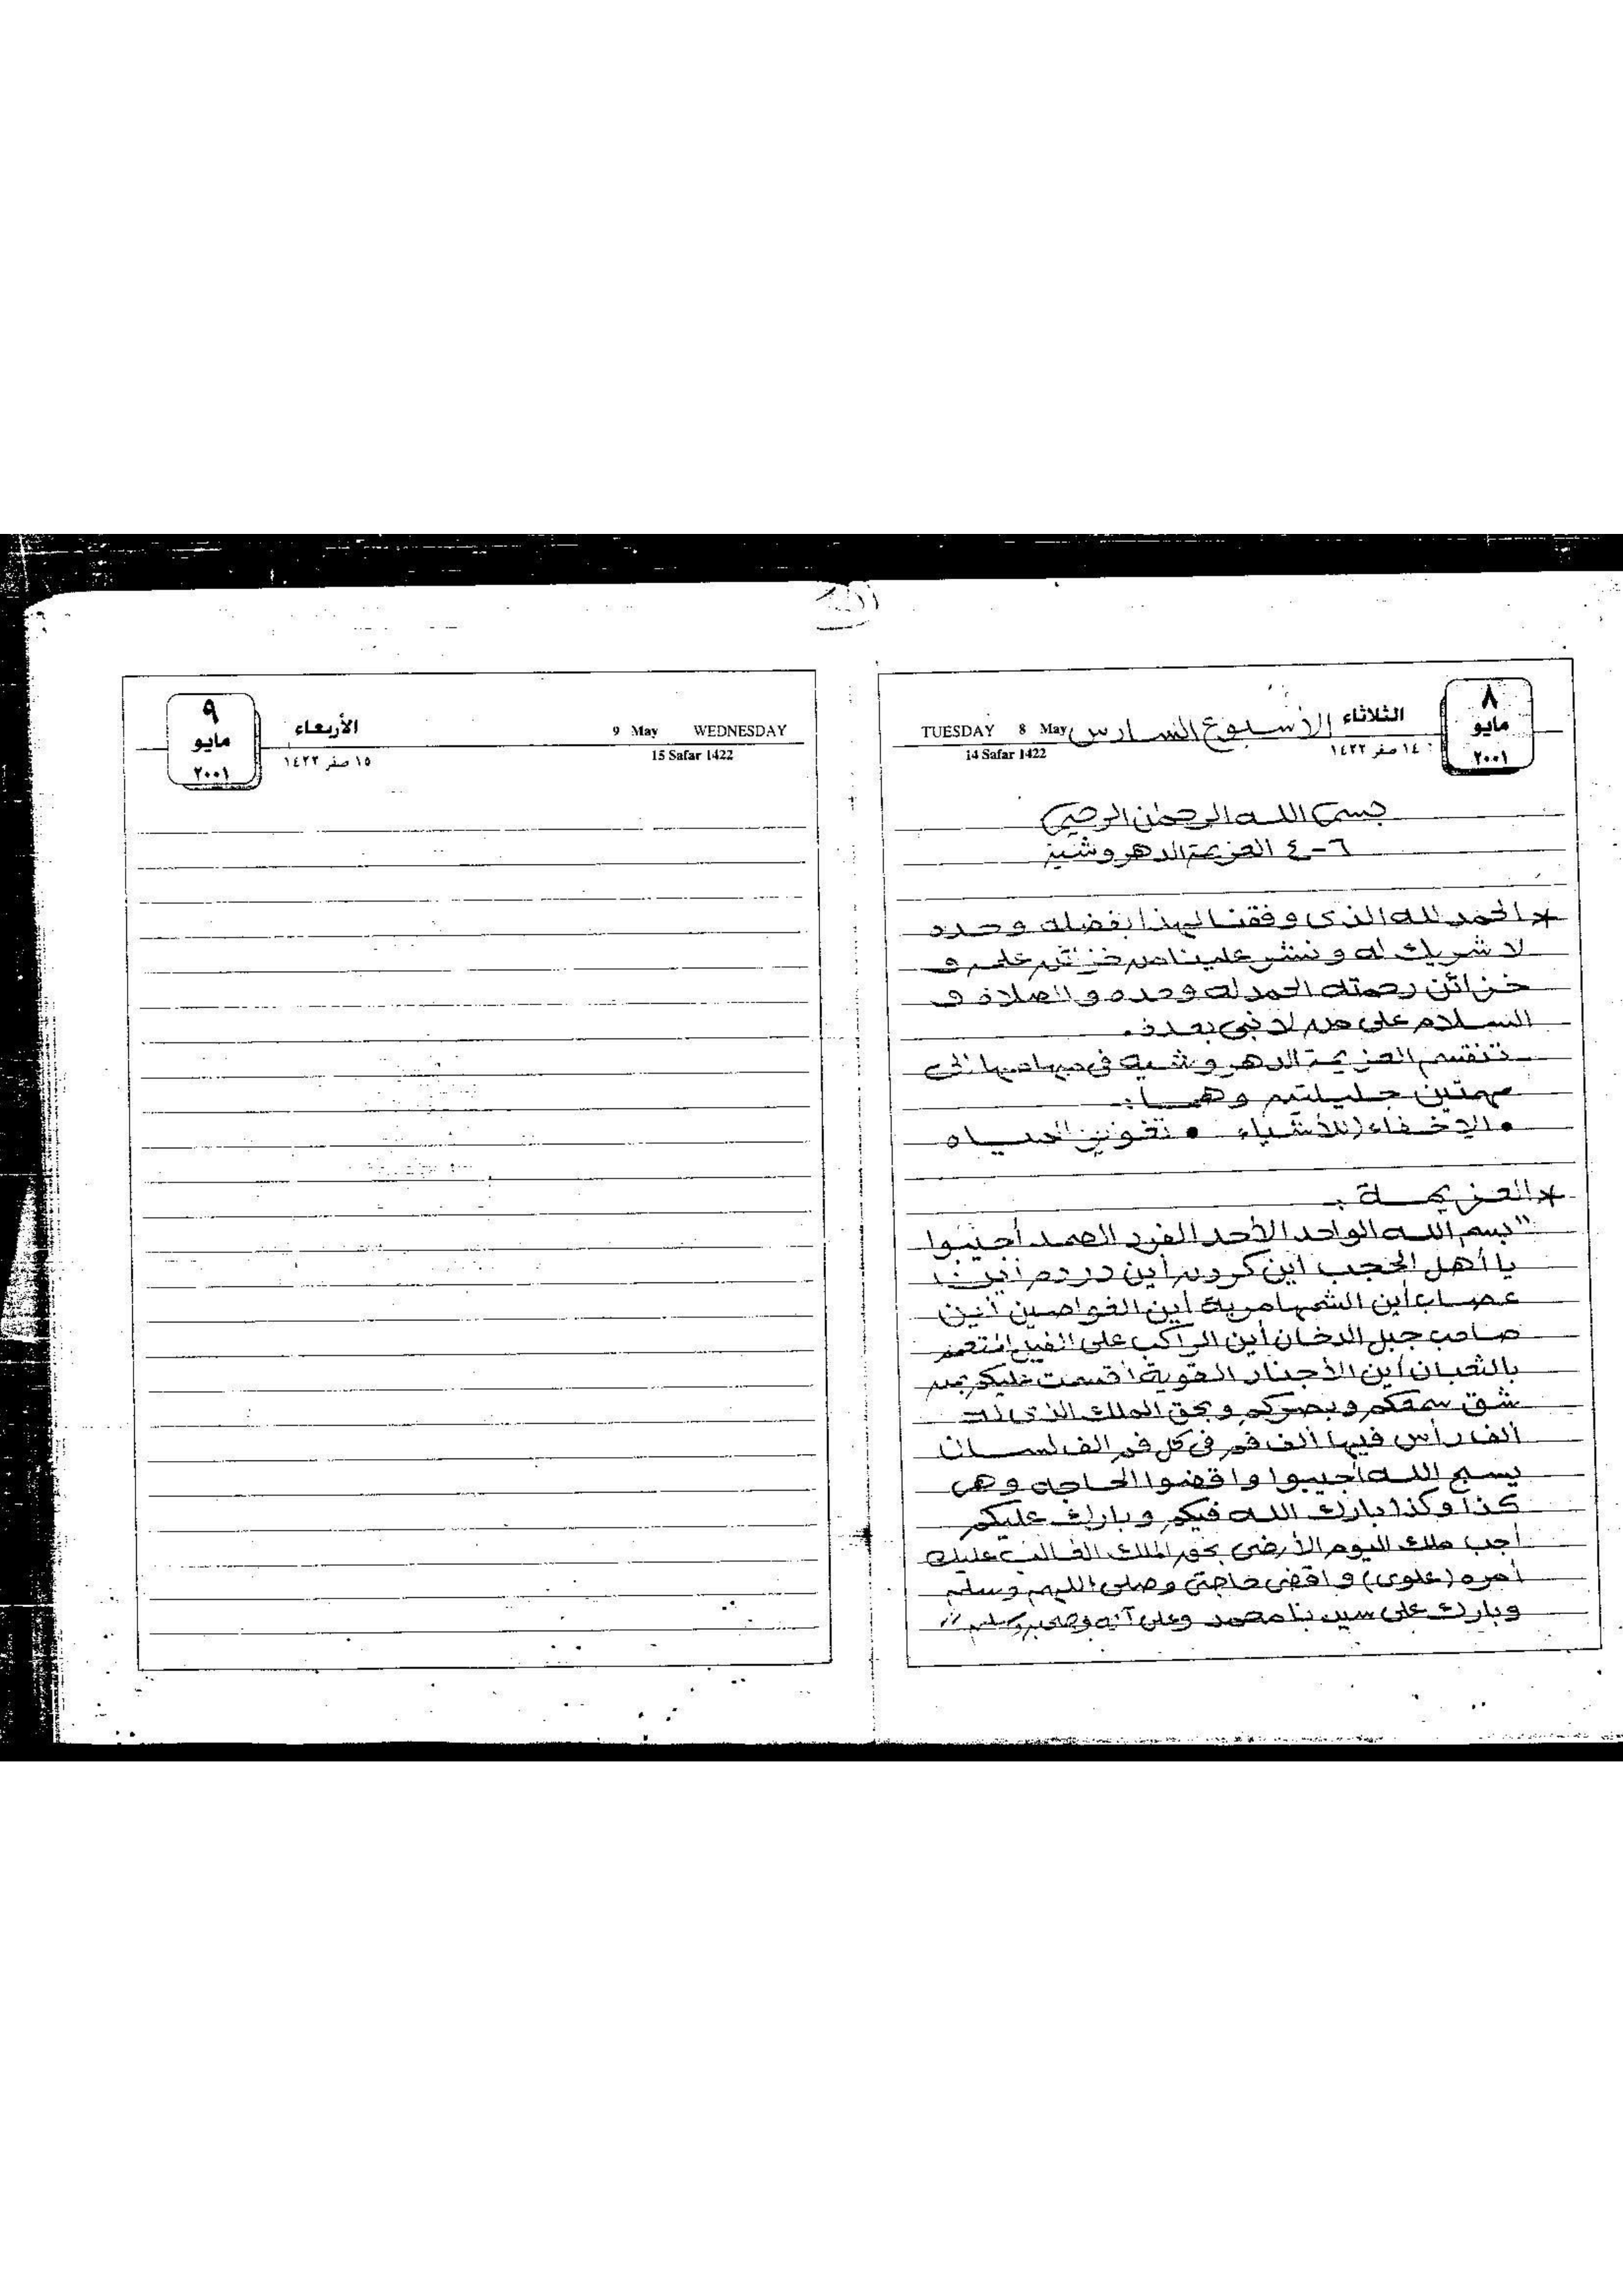 ٨ مايو ٢٠٠١
الثلاثاء الأسبوع السادس TUESDAY 8 May
١٤ صفر ١٤٢٢ 14 Safar 1422
بسم الله الرحمن الرحيم
٦-٤ العزيمة الدهروشية
* الحمد لله الذى وفقنا لهذا بفضله وحده
لا شريك له ونشر علينا من خزائن علمه و
خزائن رحمته الحمد له وحده والصلاة و
السلام على من لا نبى بعده.
تنقسم العزيمة الدهروشية فى مهامها إلى
مهمتين جليلتين وهما:
• الإخفاء للأشياء • تغوير المياه
* العزيمة :
"بسم الله الواحد الأحد الفرد الصمد أجيبوا
يا أهل الحجب أين كردم أين دردم أين
عصاب أين الشمهامرية أين الغواصين أين
صاحب جبل الدخان أين الراكب على الفيل المتعمم
بالثعبان أين الأجناد القوية أقسمت عليكم بمن
شق سمعكم وبصركم وبحق الملك الذى له
ألف رأس فيها ألف فم فى كل فم الف لسان
يسبح الله أجيبوا واقضوا الحاجه وهى
كذا وكذا بارك الله فيكم وبارك عليكم
أجب ملك اليوم الأرضى بحق الملك الغالب عليك
أمره (علوى) واقضى حاجتى وصلى اللهم وسلم
وبارك على سيدنا محمد وعلى آله وصحبه وسلم"
٩ مايو ٢٠٠١
الأربعاء 9 May WEDNESDAY
١٥ صفر ١٤٢٢ 15 Safar 1422